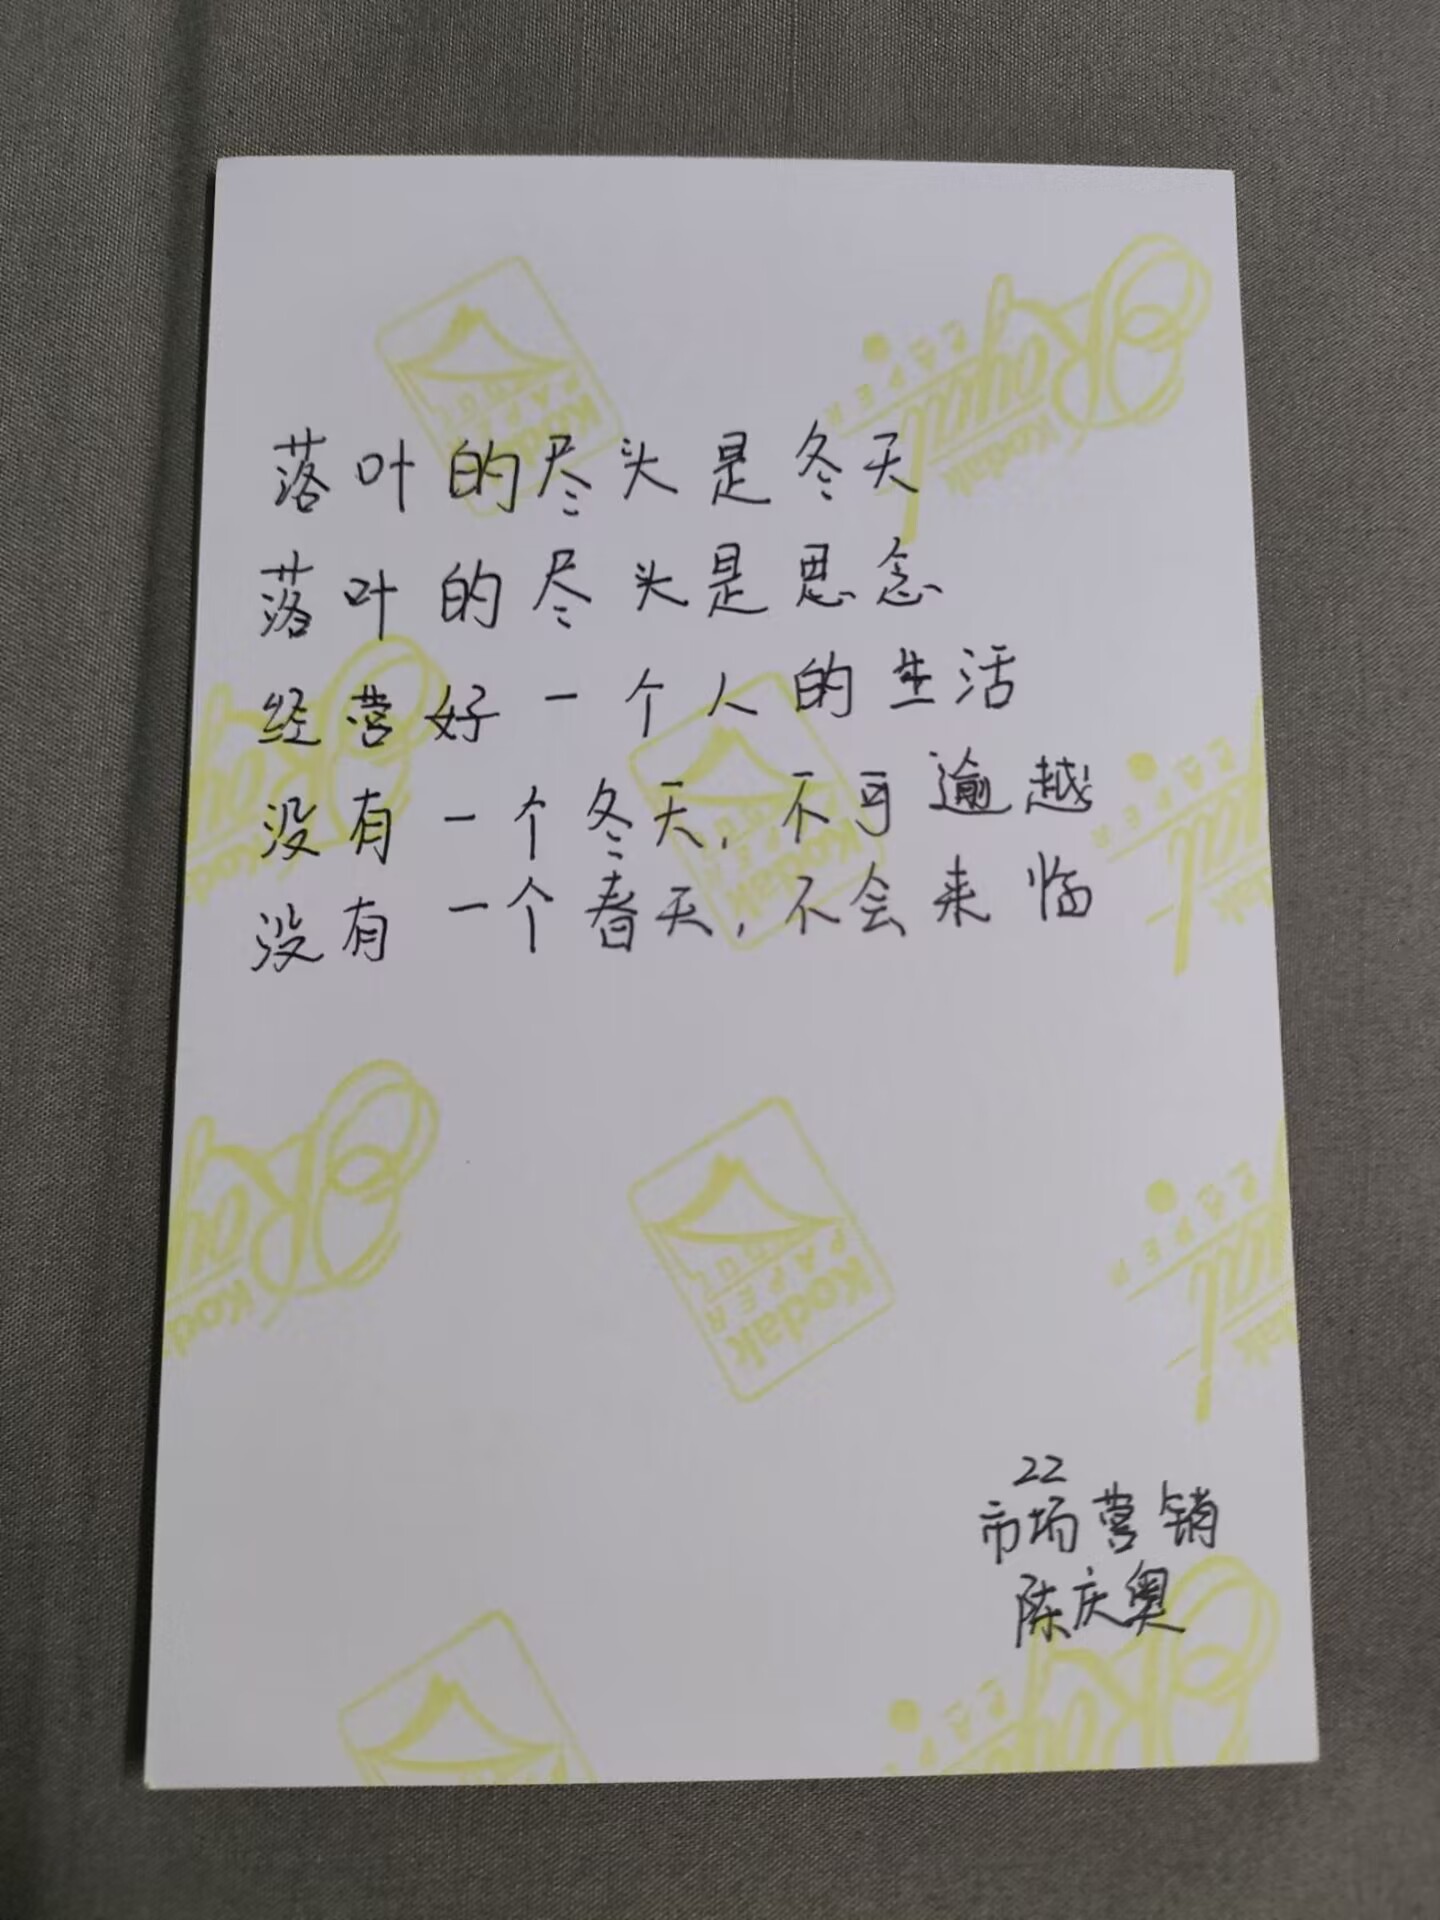 落叶的尽头是冬天
落叶的尽头是思念
经营好一个人的生活
没有一个冬天，不可逾越
没有一个春天，不会来临
22
市场营销
陈庆奥
Kodak
PAPER
Kodak
Royal
PAPER
Kodak
Royal
Kodak
PAPER
Royal
PAPER
Kodak
Royal
Kodak
PAPER
PAPER
Kodak
Royal
PAPER